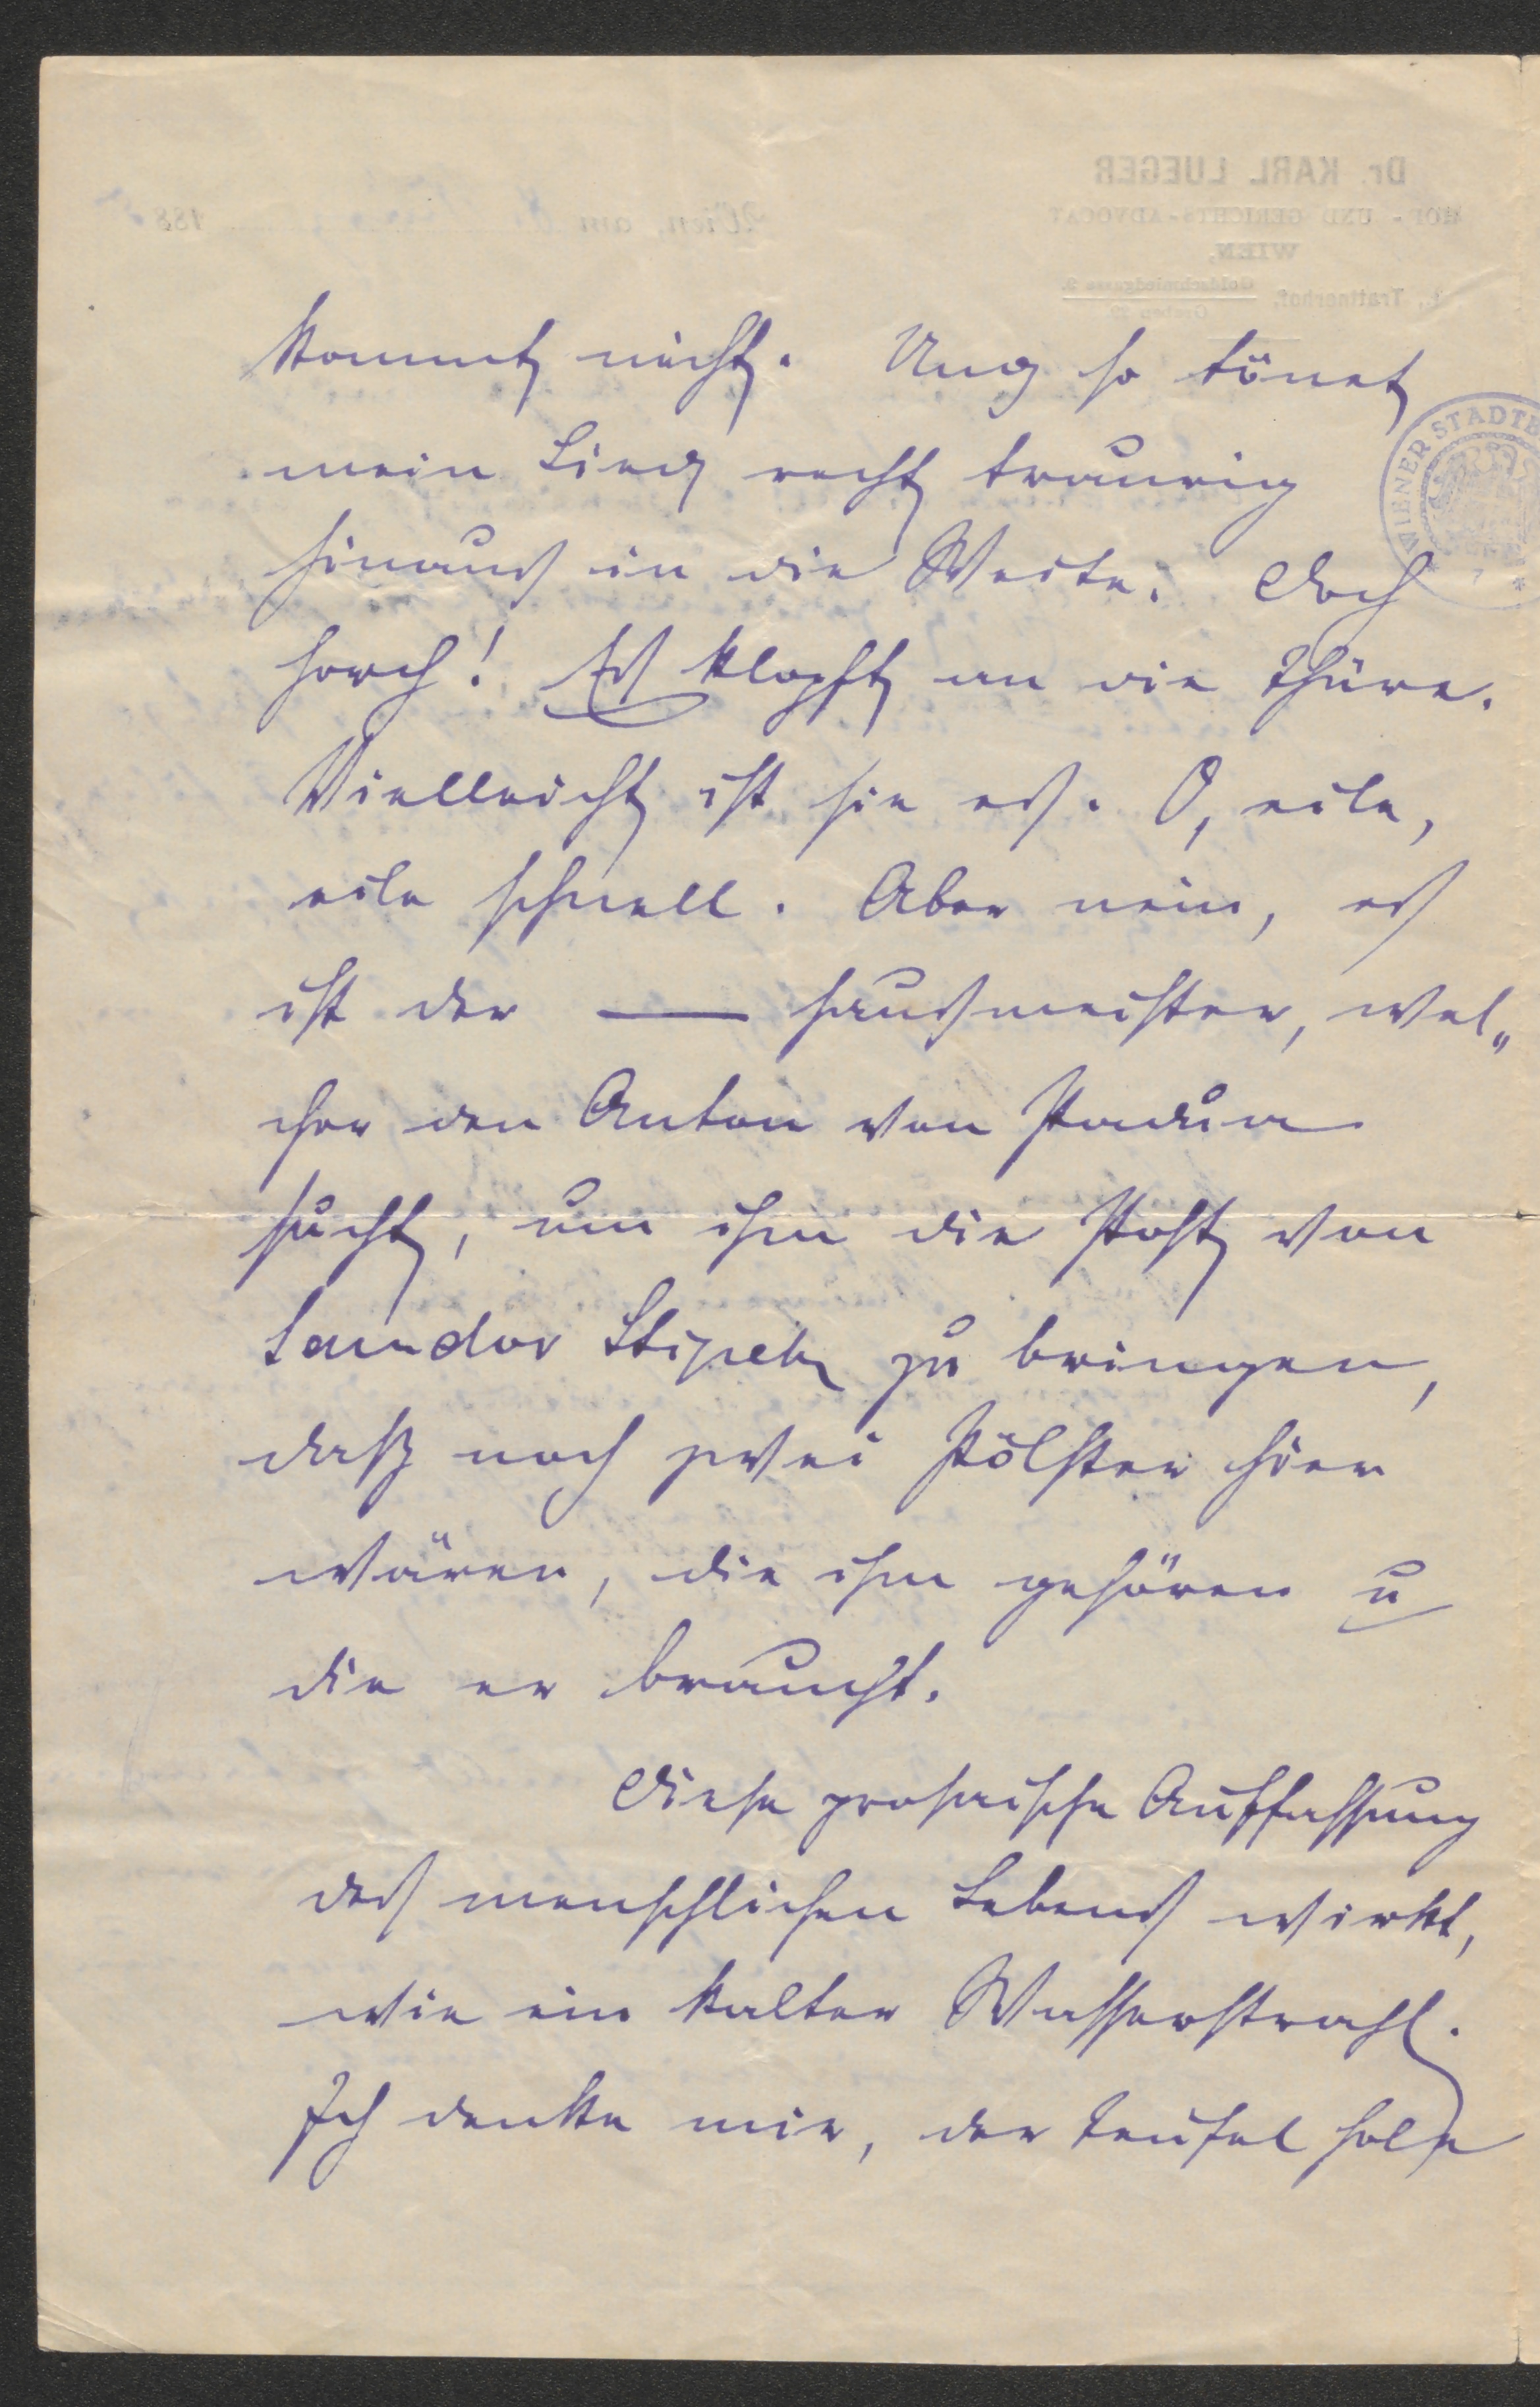 kommt nicht. Und so tönet
mein Lied recht traurig
hinaus in die Weite. Doch
horch! Es klopft an die Thüre.
Vielleicht ist sie es. O, eile,
eile schnell. Aber nein, es
ist der — Hausmeister, wel„
cher den Anton von Padua
sucht, um ihm die Post von
Sandor Stipek zu bringen,
daß noch zwei Pölster hier
wären, die ihm gehören u
die er braucht.
Diese prosaische Auffassung
des menschlichen Lebens wirkt,
wie ein kalter Wasserstrahl.
Ich denke mir, der Teufel hole
Dr. KARL LUEGER
HOF- UND GERICHTS-ADVOCAT
WIEN,
I., Trattnerhof, Goldschmiedgasse 9.
Wien, am 188
WIENER STADTB
7 *